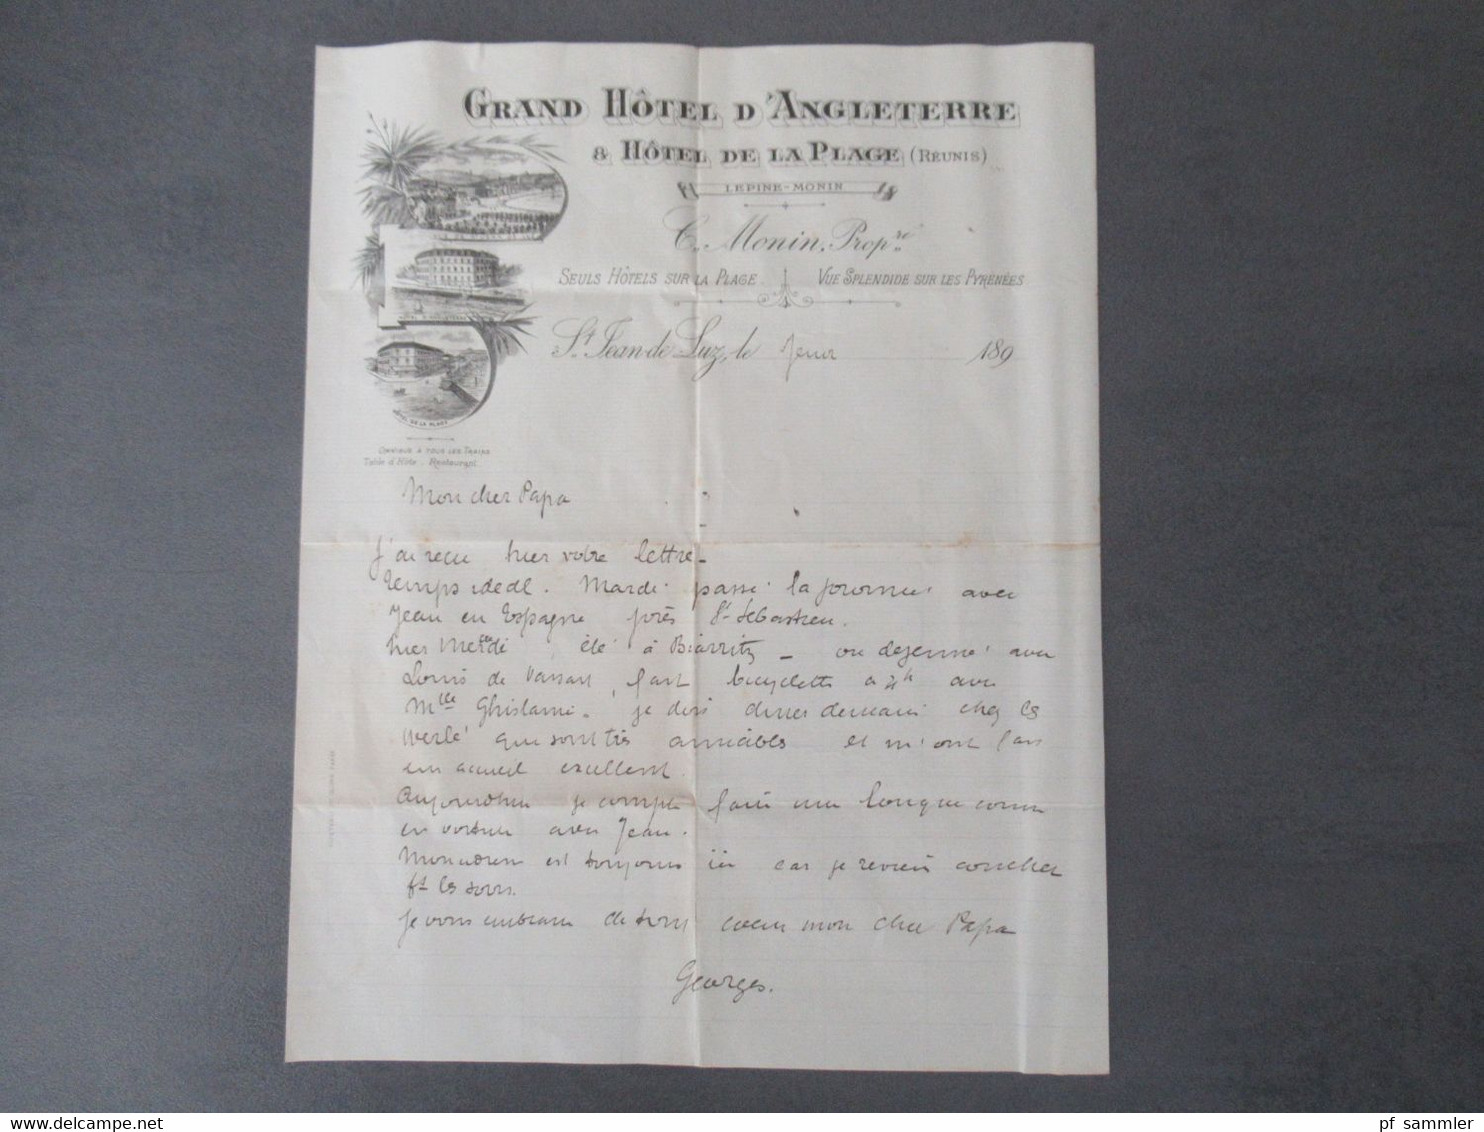 GRAND HÔTEL D'ANGLETERRE
& HÔTEL DE LA PLAGE (RÉUNIS)
LEPINE-MONIN
C. Monin, Propre
SEULS HÔTELS SUR LA PLAGE. VUE SPLENDIDE SUR LES PYRÉNÉES
St Jean-de-Luz, le 189
HÔTEL D'ANGLETERRE
HÔTEL DE LA PLAGE
OMNIBUS À TOUS LES TRAINS
Table d'Hôte - Restaurant
Mon cher Papa
J'ai reçu hier votre lettre -
temps idéal. Mardi passé la journée avec
Jean en Espagne près St Sébastien.
hier été à Biarritz - ou dejeuné avec
Louis de fait bicyclette a 4h avec
Mlle Ghislaine - je dois diner demain chez les
Werlé qui sont très aimables et m'ont fait
un accueil excellent.
Aujourd'hui je compte faire une longue course
en voiture avec Jean.
est toujours ici car je reviens coucher
tt les soirs.
Je vous embrasse de tout coeur mon cher Papa
Georges.
pf sammler
delcampe.net